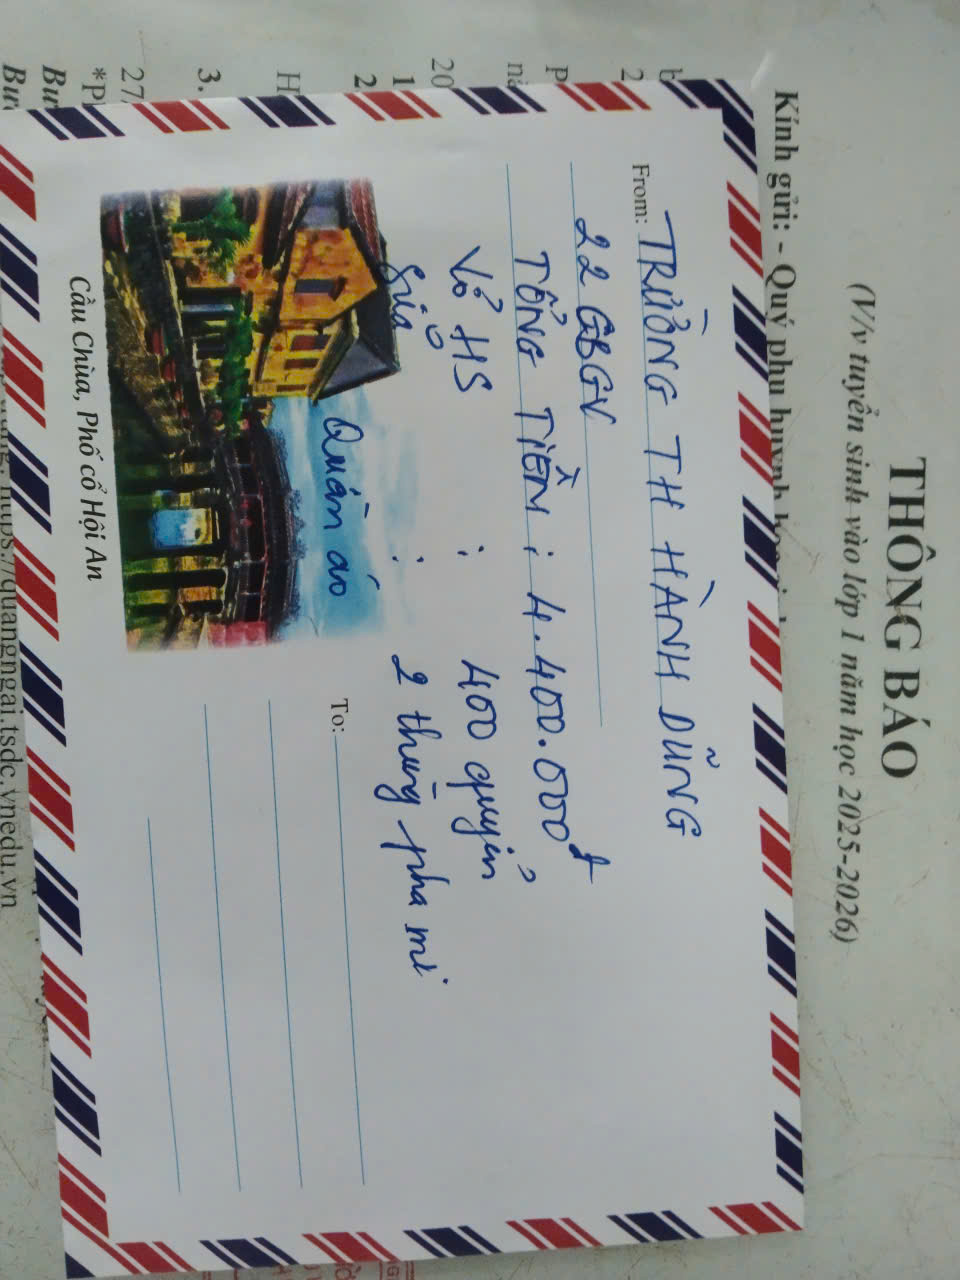 THÔNG BÁO
(V/v tuyển sinh vào lớp 1 năm học 2025-2026)
Kính gửi: - Quý phụ huynh
From: TRƯỜNG TH HÀNH DŨNG
22 GBGV
TỔNG TIỀN : 4.400.000đ
Vở HS : 400 quyển
Sữa : 2 thùng pha mi
Quần áo
To:
Cầu Chùa, Phố cổ Hội An
https://quangngai.tsdc.vnedu.vn
20
1
2
H
3.
27